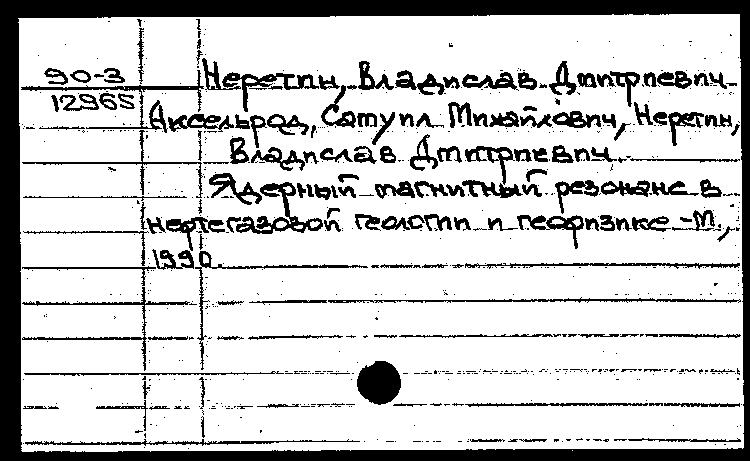 90-3
12965
Неретин, Владислав Дмитриевич
Аксельрод, Самуил Михайлович, Неретин,
Владислав Дмитриевич.
Ядерный магнитный резонанс в
нефтегазовой геологии и геофизике -М.,
1990.